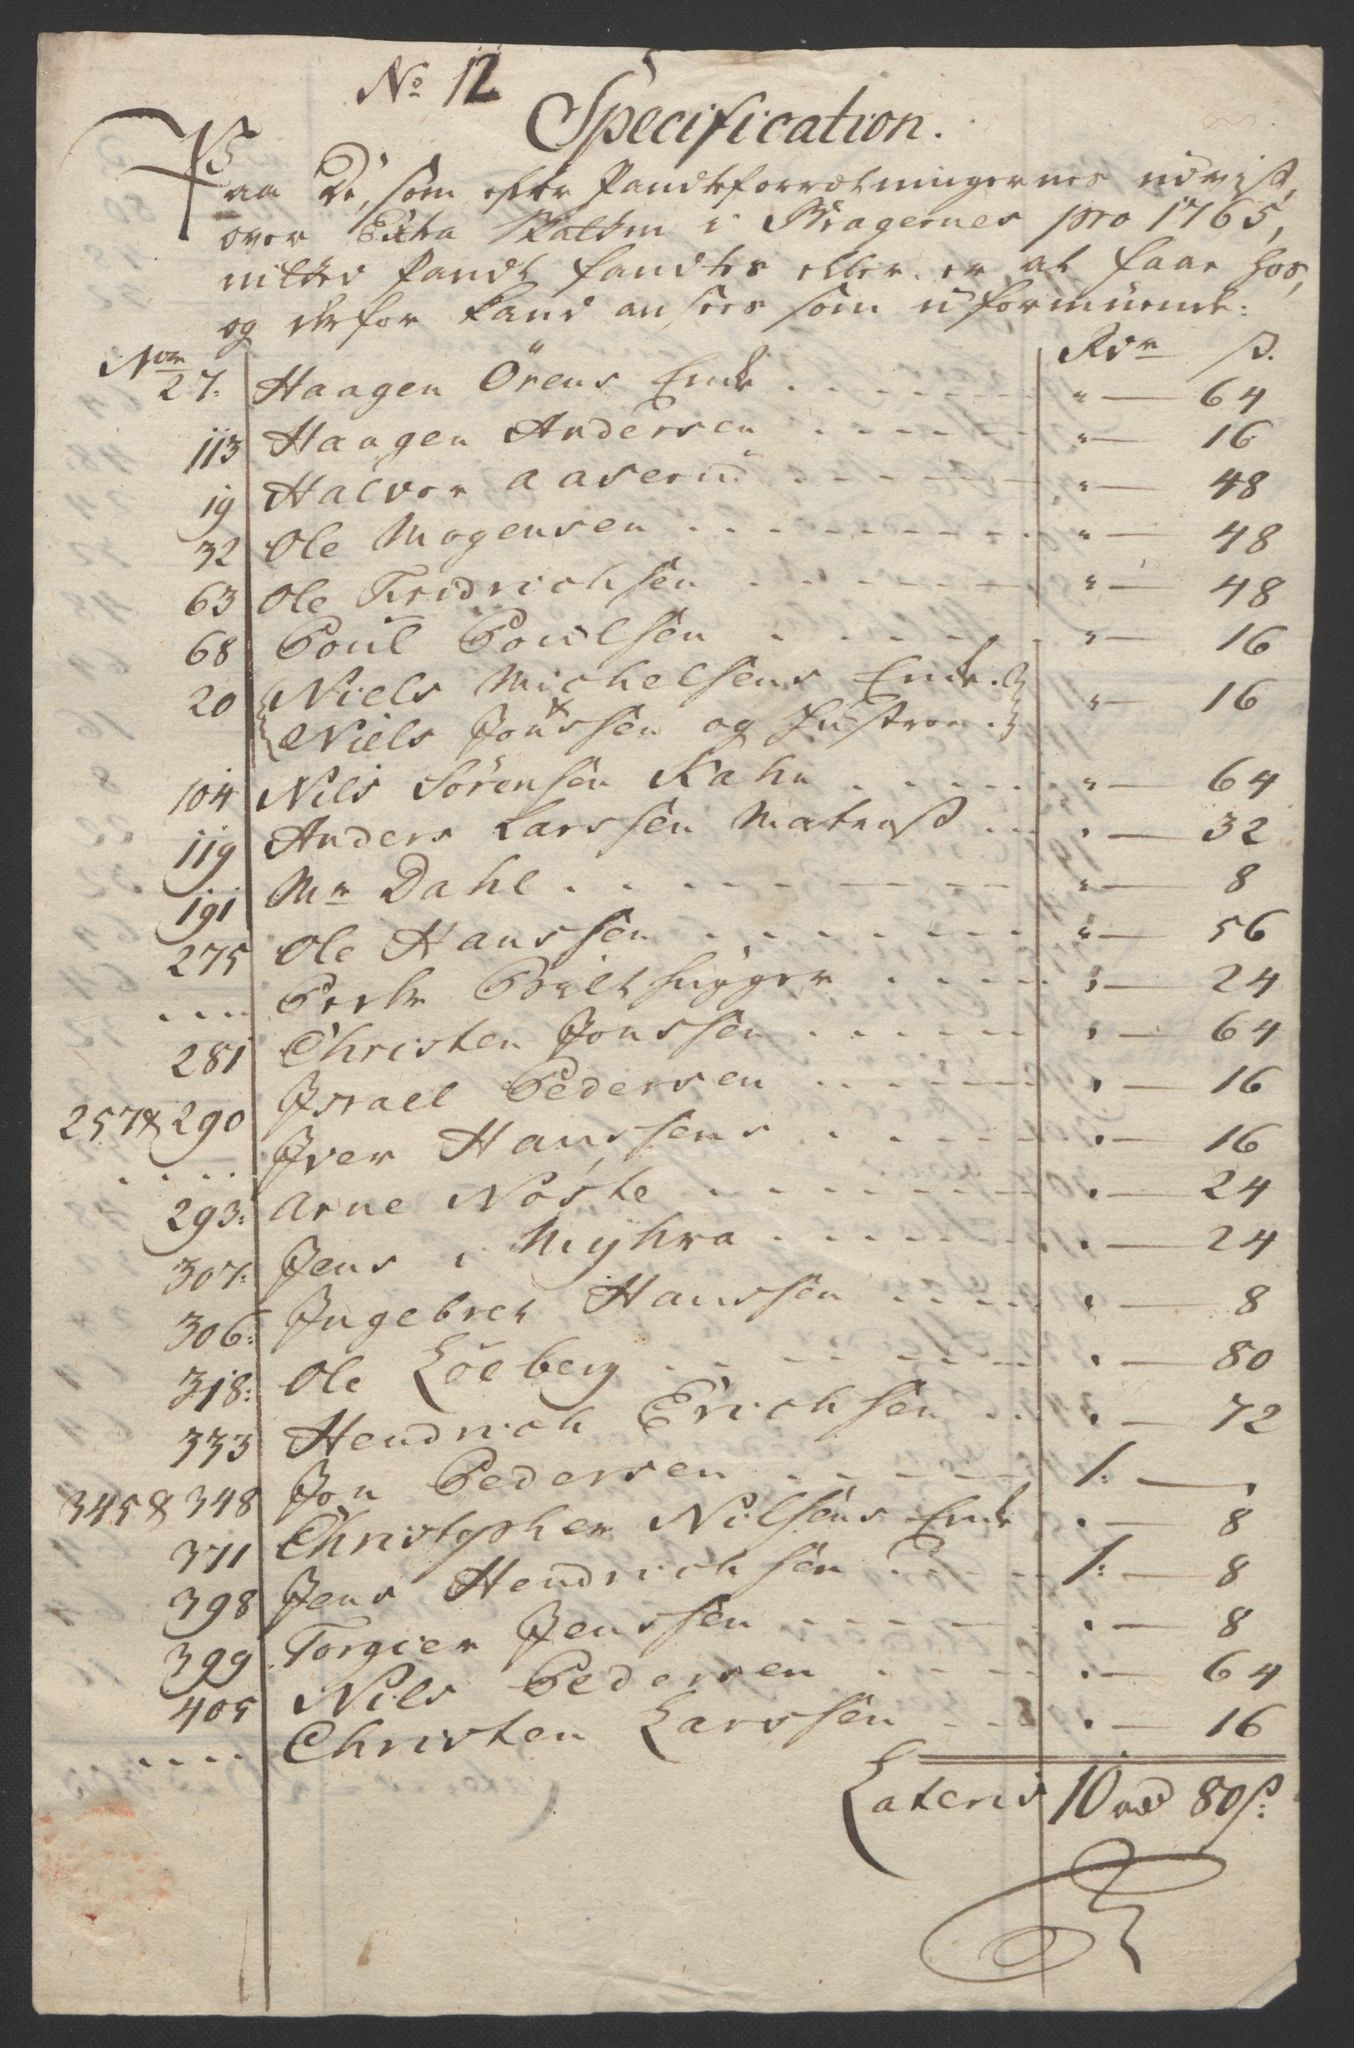 No 12
Specification.
Paa De, som efter Pandteforretningernes udvist,
over Extra Skatten i Bragernes pro 1765,
intted Pandt fandtes eller er at faae hos,
og derfor kand ansees som uformuende:
Nom Rdr ß.
27. Haagen Örens Enke . . . . . " — 64
113 Haagen Andersen . . . . . " — 16
19 Halvor Aaserud . . . . . " — 48
32 Ole Mogensen . . . . . " — 48
63 Ole Fridrichsen . . . . . " — 48
68 Poul Poulsen . . . . . " — 16
20 Niels Michelsens Enke. " — 16
Niels Jonssen og Hustroe.
104 Nils Sörensen Kahn . . . . . " — 64
119 Anders Larssen Matross . . . " — 32
191 Mr Dahl . . . . . " — 8
275 Ole Hanssen . . . . . " — 56
. . . . Peder BiltHugger . . . . . " — 24
281 Christen Jonssen . . . . . " — 64
257 & 290 Israel Pedersen . . . . . " — 16
. . . . . Iver Hanssens . . . . . " — 16
293: Arne Nöste . . . . . " — 24
307: Jens i Myhra . . . . . " — 24
306: Ingebret Hanssen . . . . . " — 8
318: Ole Löeberg . . . . . " — 80
333 Hendrich Erichsen . . . " — 72
345 & 348 Jon Pedersen . . . . . 1: — "
371 Christopher Nilsens Enke " — 8
398 Jens Hendrichsen . . . . . 1: — 8
399 Torgier Jenssen . . . . . " — 8
405 Nils Pedersen . . . . . " — 64
. . . . Christen Larssen . . . " — 16
Lateris 10 rd 80 ß: